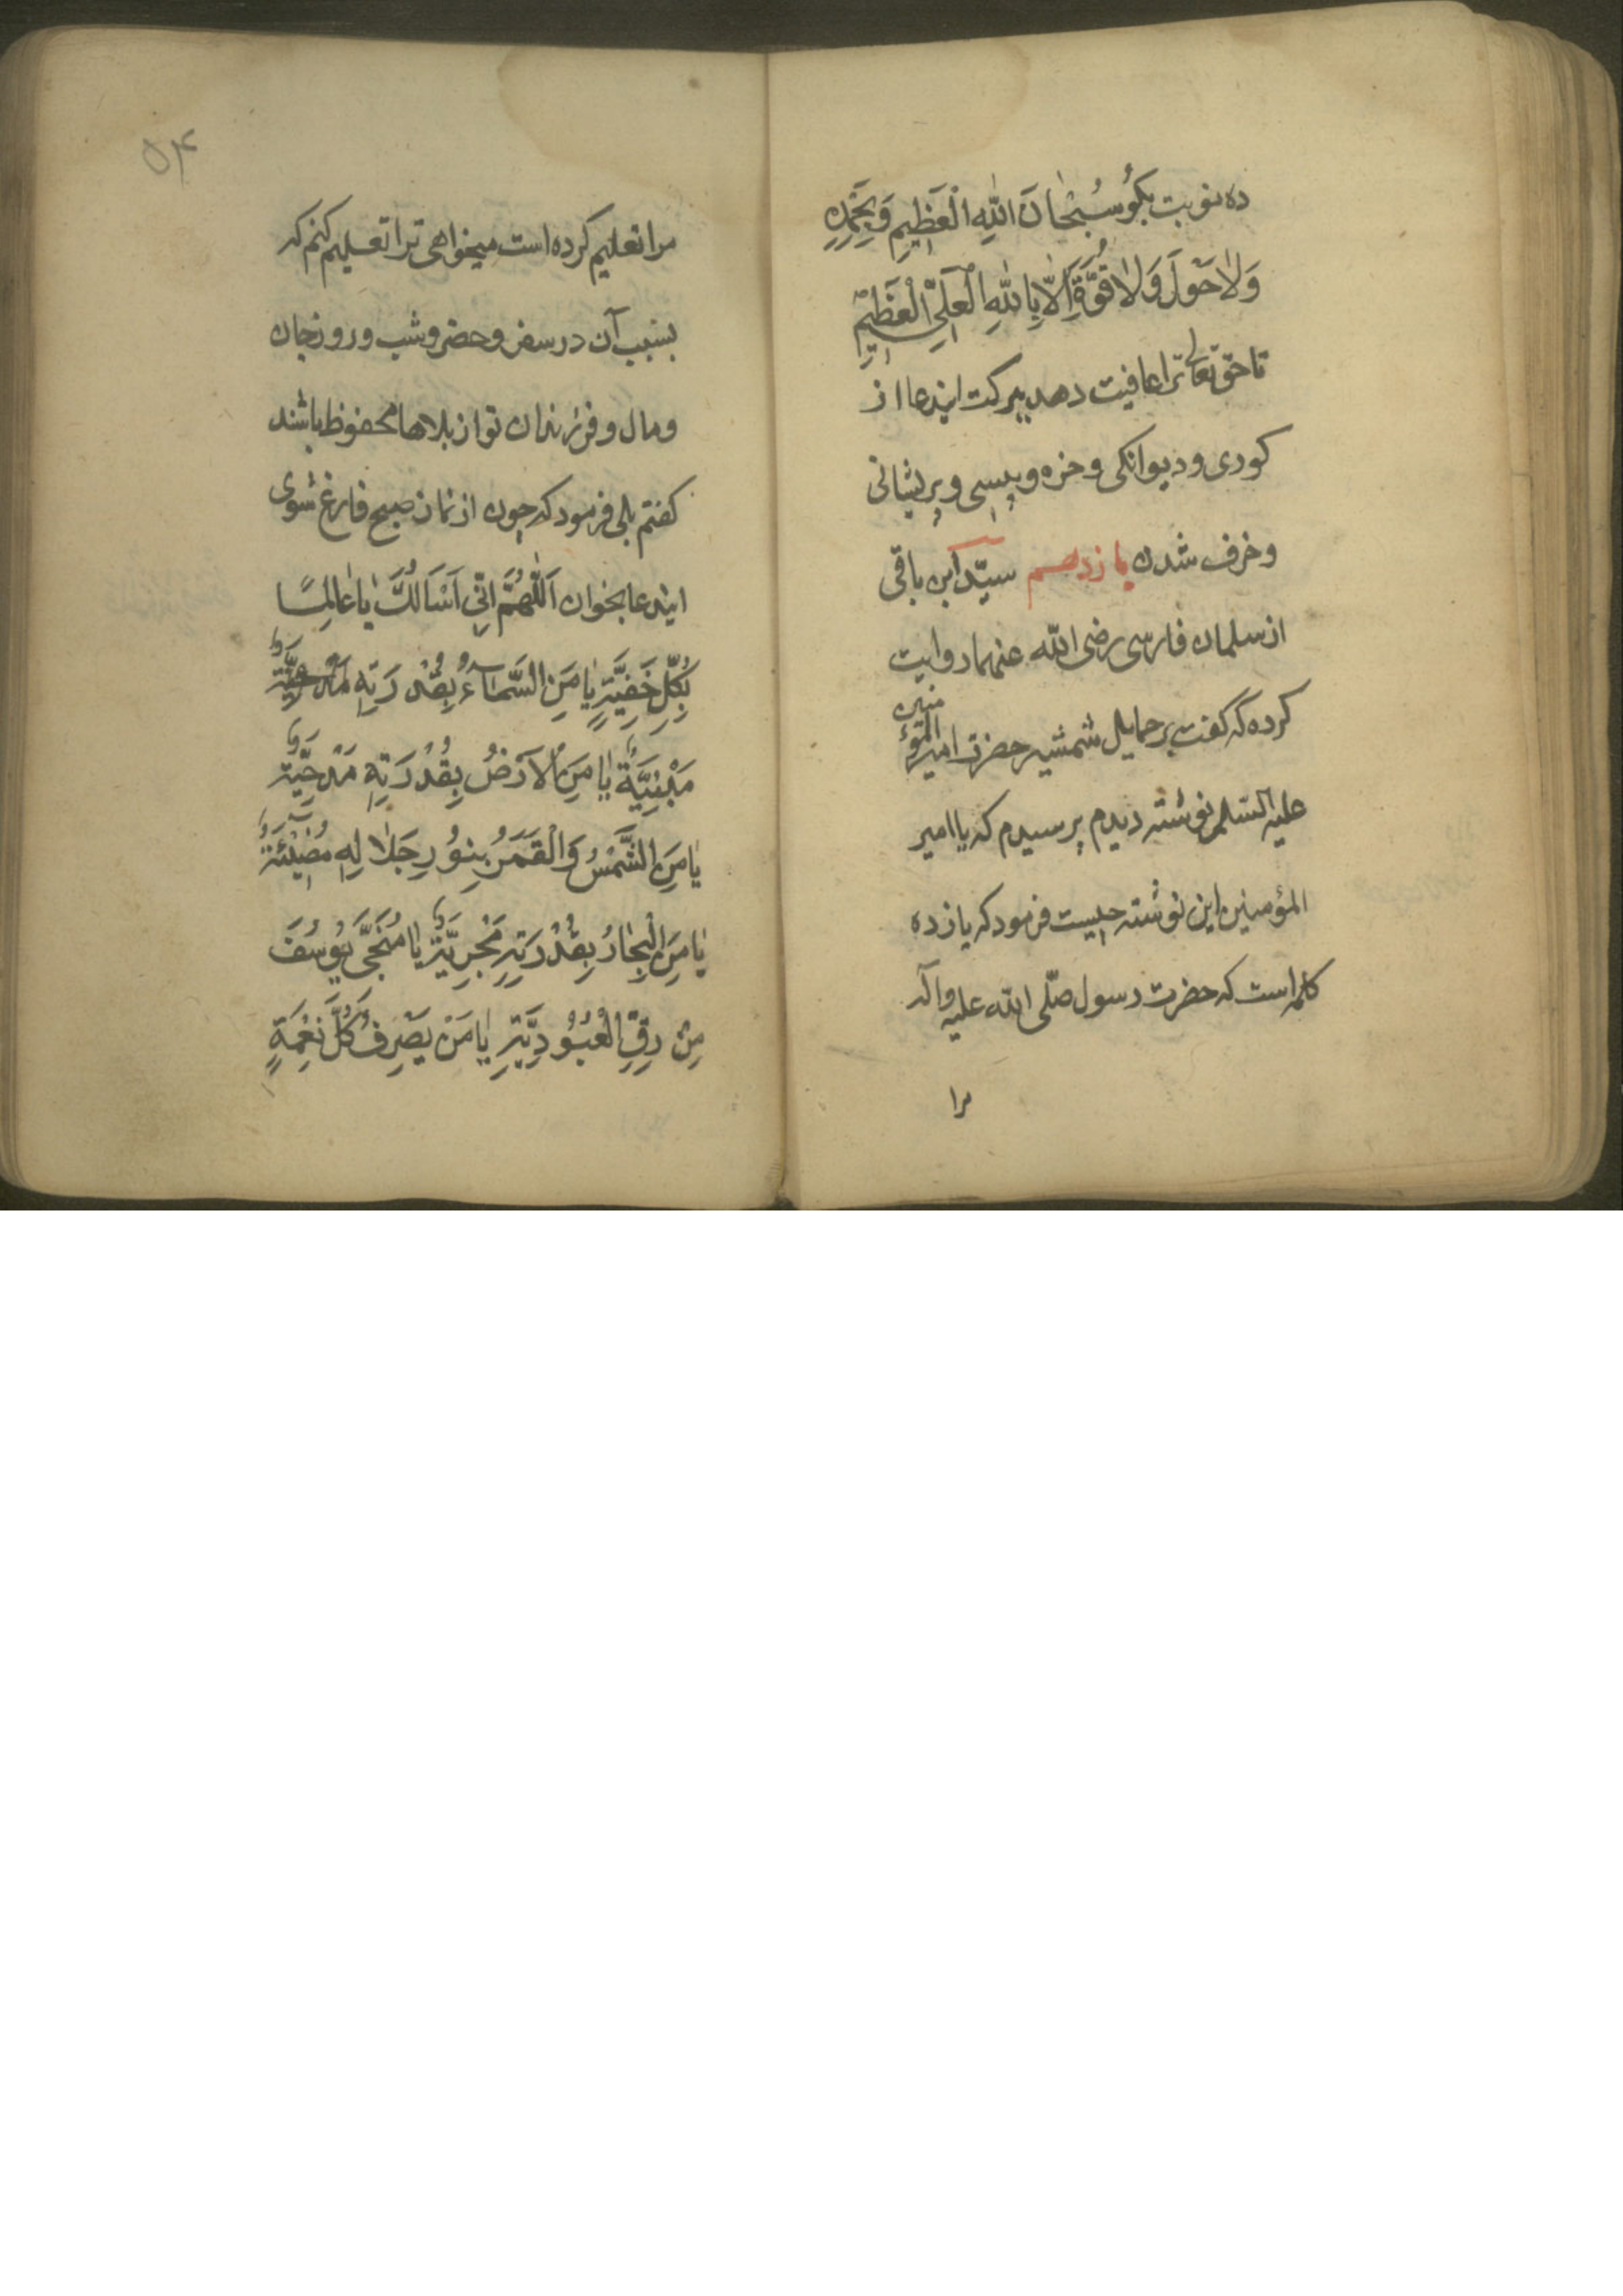 ده نوبت بكو سُبْحٰانَ اللّٰهِ الْعَظِيمِ وَبِحَمْدِهِ
وَلاٰ حَوْلَ وَلاٰ قُوَّةَ اِلّاٰ بِاللّٰهِ الْعَلِيِّ الْعَظِيْمِ
تا حق تعالى ترا عافیت دهد ببرکت ایندعا از
کوری و دیوانکی و خزه و پیسی و پریشانی
و خرف شدن یازدهم سیّد ابن باقی
از سلمان فارسی رضی الله عنهما روایت
کرده که کفت بر حمایل شمشیر حضرت امیر المؤمنین
علیه السّلم نوشته دیدم پرسیدم که یا امیر
المؤمنین این نوشته چیست فرمود که یازده
کلمه است که حضرت رسول صلّی الله علیه وآله
مرا
۵۴
مرا تعلیم کرده است میخواهی ترا تعلیم کنم که
بسبب آن در سفر و حضر و شب و روز جان
و مال و فرزندان تو از بلاها محفوظ باشند
کفتم بلی فرمود که چون از نماز صبح فارغ شوی
ایندعا بخوان اَللّٰهُمَّ اِنّی اَسْاَلُكَ یٰا عٰالِمًا
بِكُلِّ خَفِيَّةٍ يٰا مَنِ السَّمٰآءُ بِقُدْرَتِهِ
مَبْنِيَّةٌ يٰا مَنِ الْاَرْضُ بِقُدْرَتِهِ مَدْحِيَّةٌ
يٰا مَنِ الشَّمْسُ وَالْقَمَرُ بِنُورِ جَلٰالِهِ مُضِيْئَةٌ
يٰا مَنِ الْبِحٰارُ بِقُدْرَتِهِ مَجْرِيَّةٌ يٰا مُنَجِّيَ يُوسُفَ
مِنْ رِقِّ الْعُبُوْدِيَّةِ يٰا مَنْ يَصْرِفُ كُلَّ نِعْمَةٍ